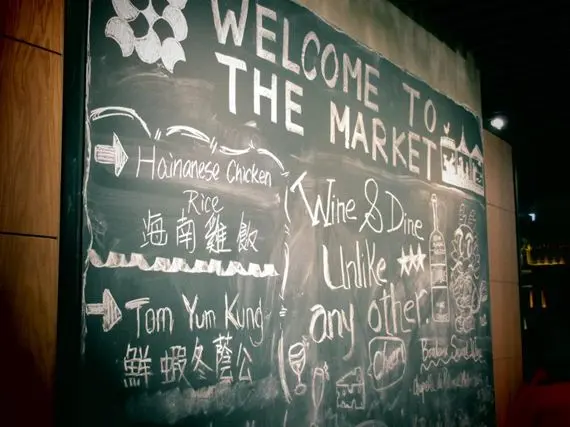 WELCOME TO
THE MARKET
Hainanese Chicken
Rice
海南雞飯
Tom Yum Kung
鮮蝦冬蔭公
Wine & Dine
Unlike
any other